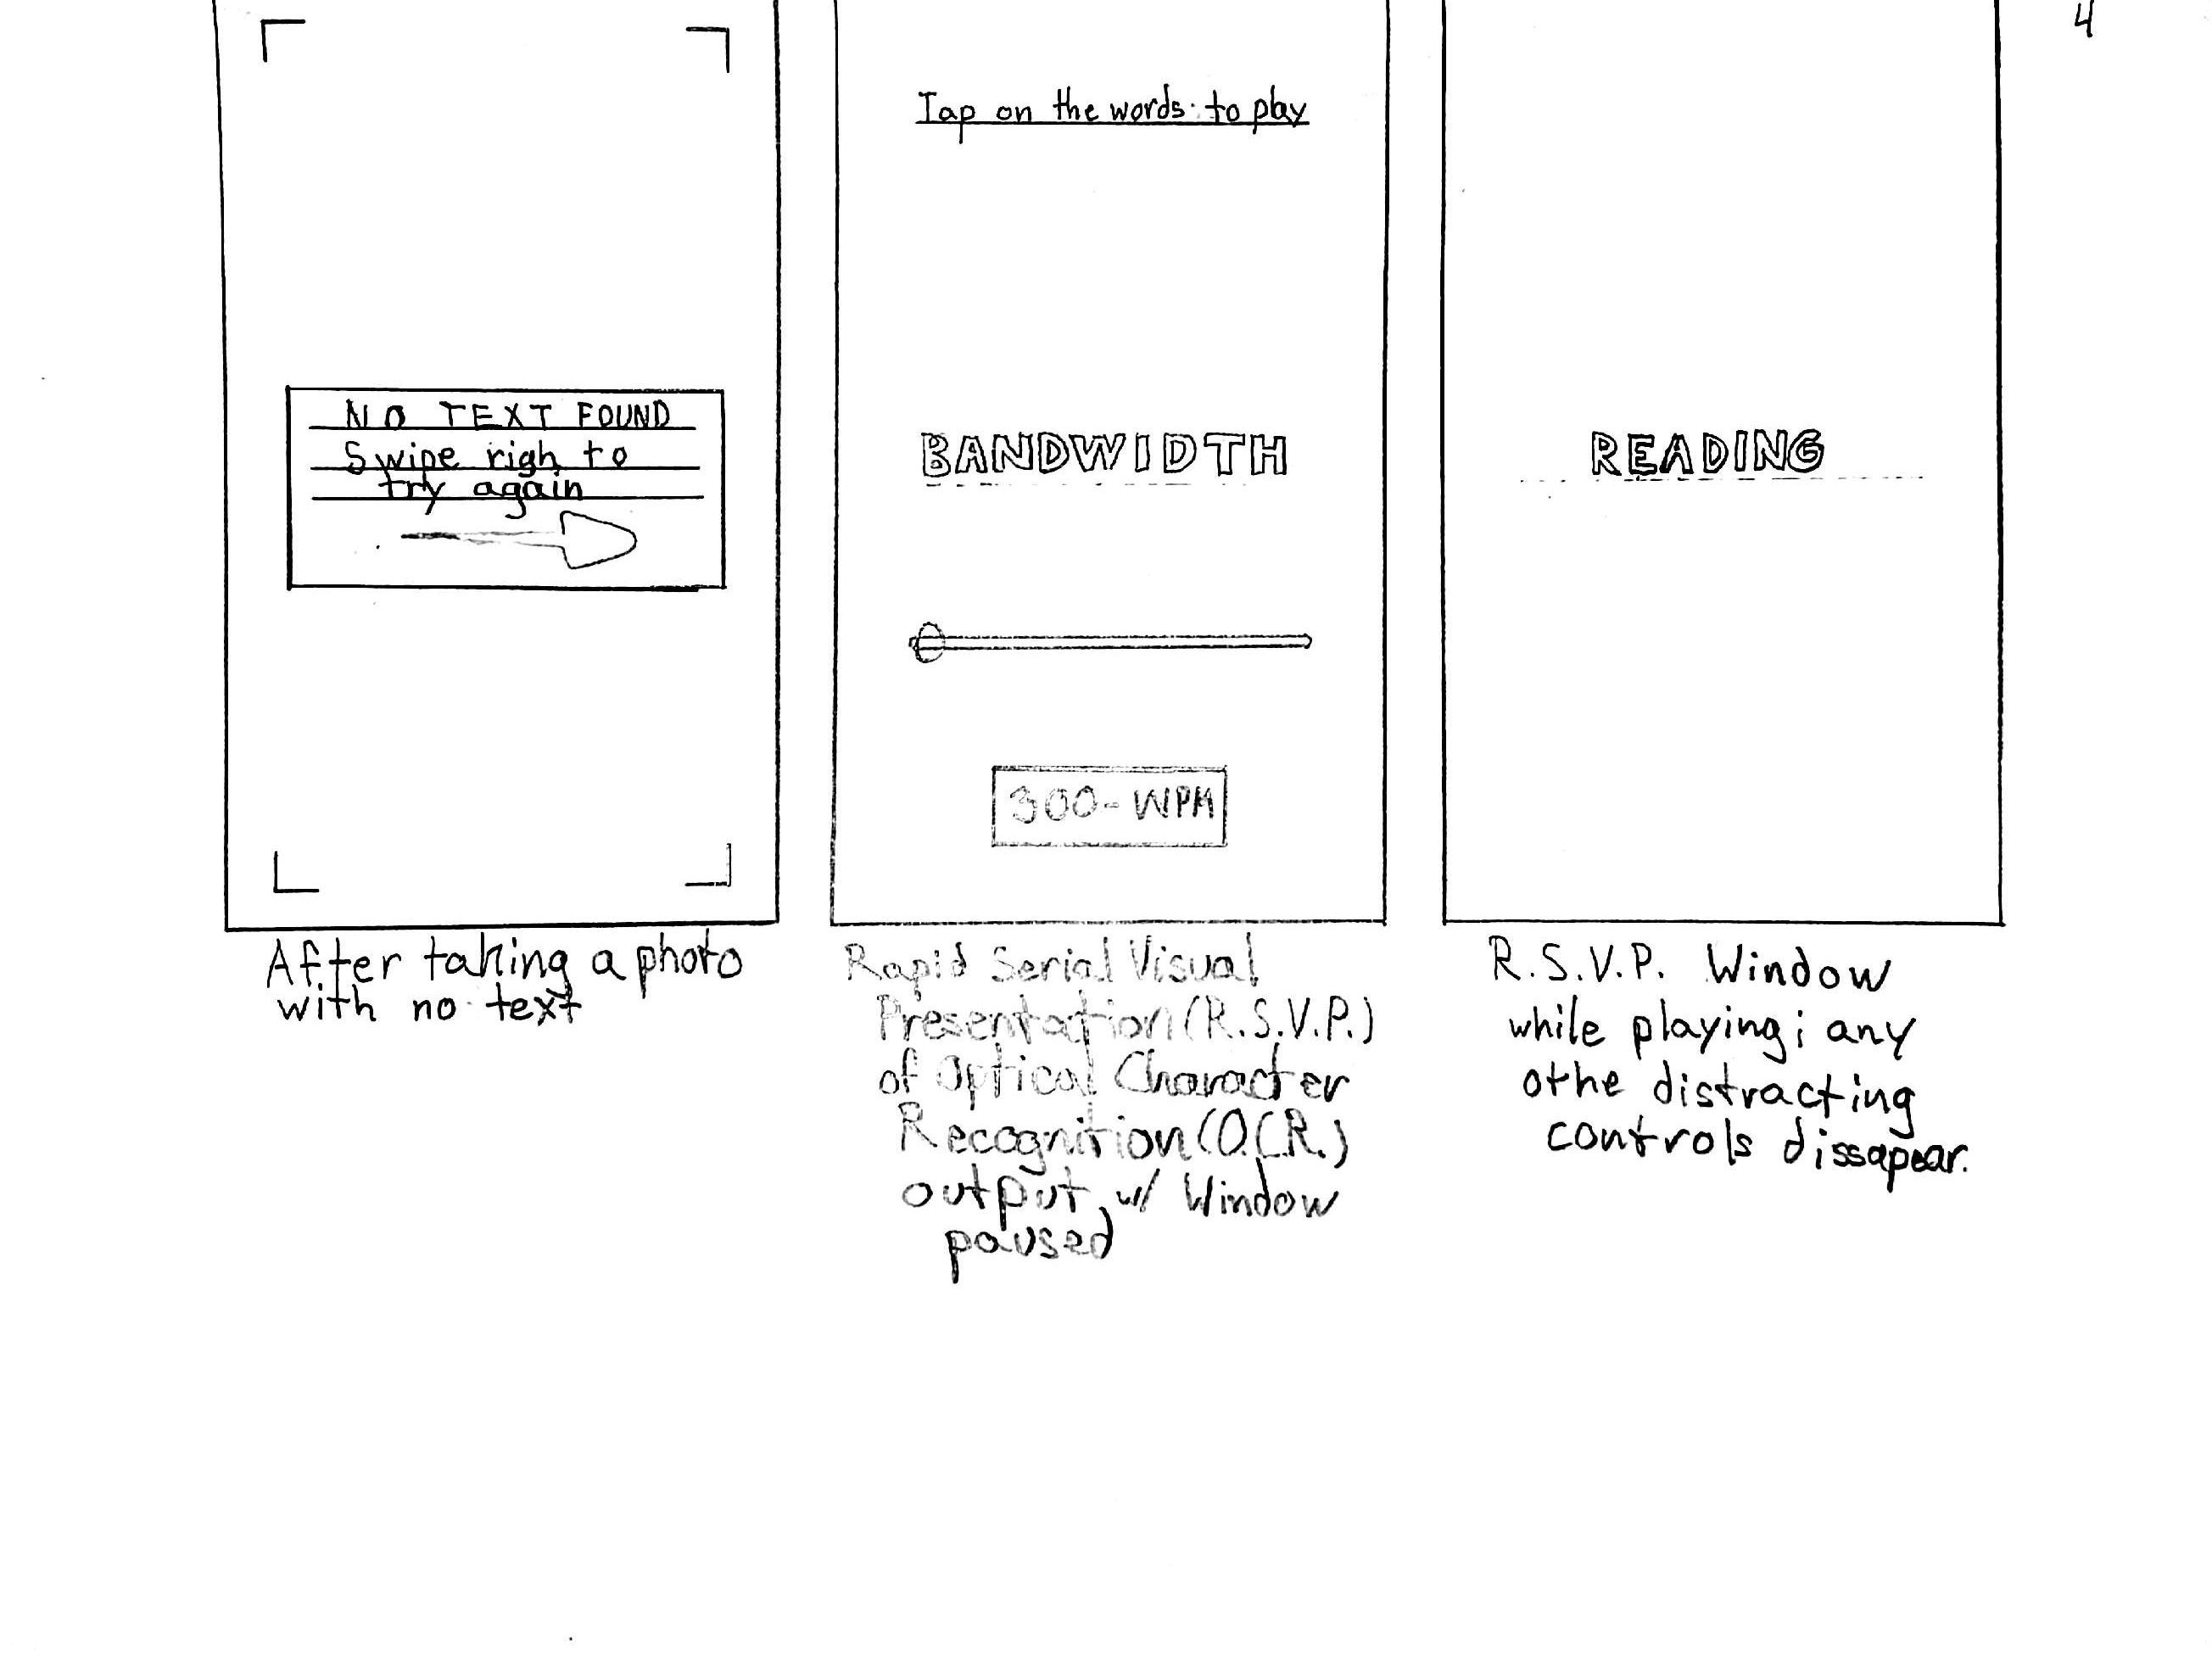 4
NO TEXT FOUND
Swipe righ to
try again
After taking a photo
with no text
Tap on the words to play
BANDWIDTH
300-WPM
Rapid Serial Visual
Presentation (R.S.V.P.)
of Optical Character
Recognition (O.C.R.)
output, w/ Window
paused
READING
R.S.V.P. Window
while playing; any
othe distracting
controls dissapear.